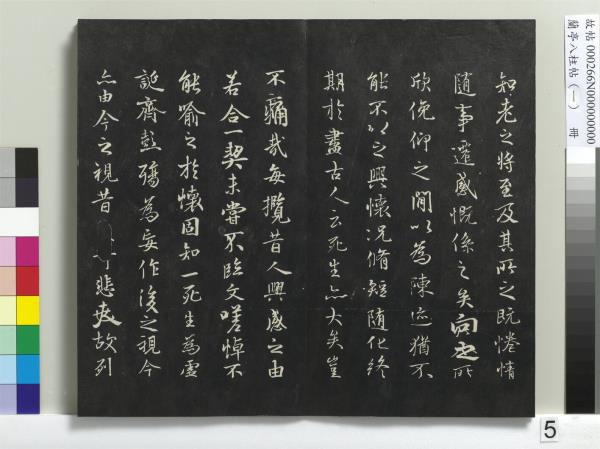 知老之將至及其所之既惓情
隨事遷感慨係之矣向之所
欣俛仰之閒以為陳迹猶不
能不以之興懷況脩短隨化終
期於盡古人云死生亦大矣豈
不痛哉每攬昔人興感之由
若合一契未嘗不臨文嗟悼不
能喻之於懷固知一死生為虛
誕齊彭殤為妄作後之視今
亦由今之視昔 悲夫故列
故帖 000266N000000000
蘭亭八柱帖(一) 冊
5